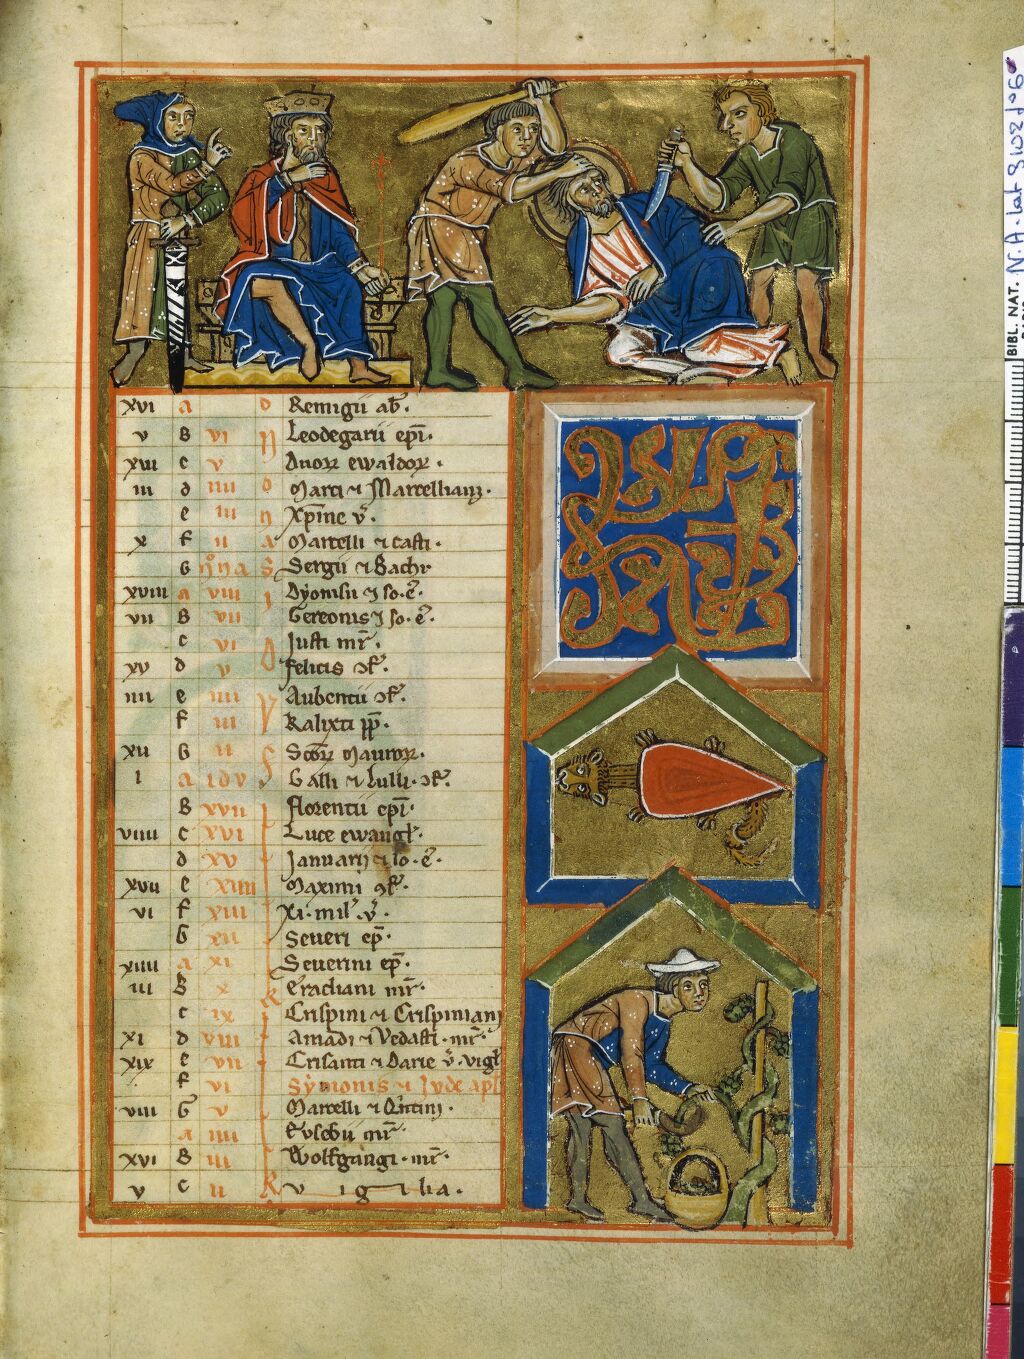 xvi a o Remigii ab̄.
v B vi N Leodegarii ep̄i.
xiii c v Duorꝝ ewaldorꝝ.
iii d iiii o Marci ⁊ Marcelliani.
e iii n Xp̄ine v̄.
x f ii a Marcelli ⁊ casti.
G non̄a s Sergii ⁊ Bachi
xviii a viii i Dyonisii ⁊ so. e.
vii B vii Gereonis ⁊ so. e.
c vi Justi mr̄.
xv d v Felicis ↄf̄.
iiii e iiii Aubentii ↄf̄.
f iii Kalixti pp̄.
xii G ii Scōrꝝ Maurorꝝ.
i a idv Galli ⁊ Lulli. ↄf̄.
B xvii Florentii ep̄i.
viiii c xvi Luce ewangl̄.
d xv Januarii ⁊ so. e.
xvii e xiiii Maximi ↄf̄.
vi f xiii Xi. mil̄. v̄.
G xii Seueri ep̄.
xiiii a xi Seuerini ep̄.
iii B x k Eracliani mr̄.
c ix Crispini ⁊ Crispiniani
xi d viii Amādi ⁊ Vedasti. mr̄.
xix e vii Crisanti ⁊ Darie v̄. vigl̄
f vi Symonis ⁊ Jvde apl̄
viii G v Marcelli ⁊ Q̇ntini.
a iiii Evsebii mr̄.
xvi B iii Wolfgangi. mr̄.
v c ii k vigilia.
BIBL. NAT. N.A. lat 3102 d°6